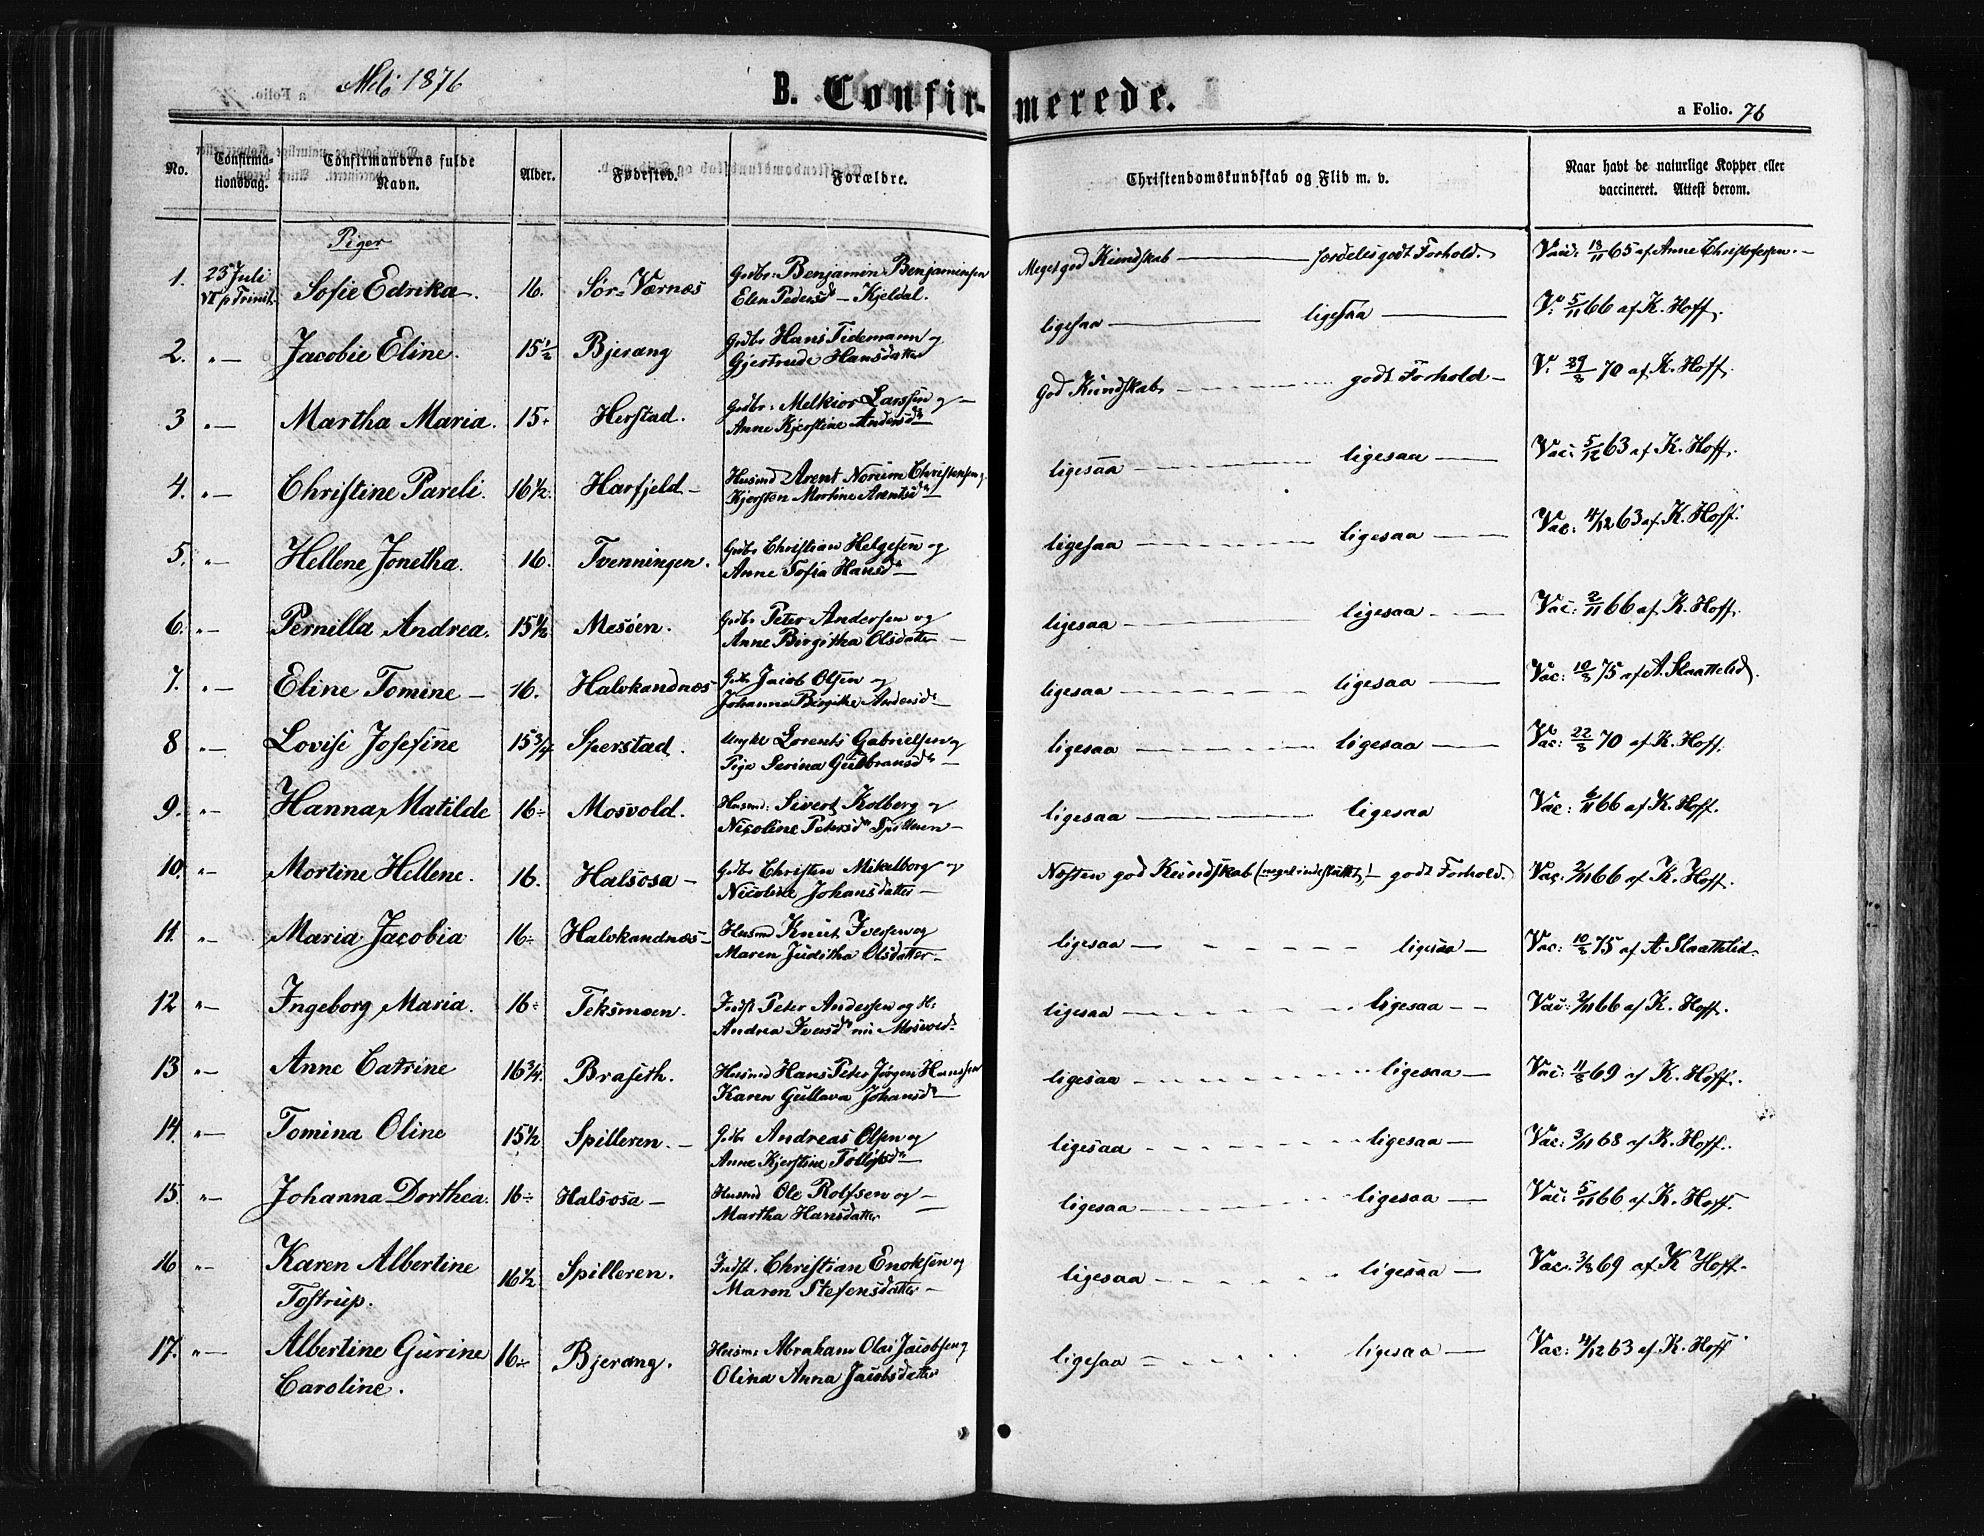 Melö 1876
B. Confirmerede.
a Folio. 76
No. Confirmationsdag. Confirmandens fulde Navn. Alder. Fødested. Forældre. Christendomskundskab og Flid m. v. Naar havt de naturlige Kopper eller vaccineret. Attest derom.
Piger
1. 23 Juli VI p Trinit. Sofie Edrika. 16. Sör-Værnæs Gdbr: Benjamin Benjaminsen Elen Pedersdr - Kjeldal. Meget god Kundskab — særdeles godt Forhold. Vac: 18/11 65 af Anne Christofersen.
2. "— Jacobie Eline. 15 1/2 Bjerang Gdbr Hans Tidemann og Gjertrude Hansdatter ligesaa — ligesaa — V. 5/11 66 af K. Hoff.
3 "— Martha Maria. 15. Herstad. Gdbr: Melkior Larssen og Anne Kjerstine Andersdr God Kundskab — godt Forhold — V. 29/8 70 af K. Hoff.
4. "— Christine Pareli. 16 1/2. Harfjeld Husmd Arent Norum Christensen og Kjersten Martine Arentsdr ligesaa — ligesaa — Vac: 5/12 63 af K. Hoff.
5. "— Hellene Jonetha. 16. Tvenningen. Gdbr Christian Helgesen og Anne Sofia Hansdr ligesaa — ligesaa — Vac: 4/12 63 af K. Hoff.
6. "— Pernilla Andrea. 15 1/2 Mesöen. Gdbr Peter Andersen og Anne Birgitha Olsdatter ligesaa — ligesaa — Vac: 2/11 66 af K. Hoff.
7. "— Eline Tomine — 16. Halvkandnæs Gdbr Jacob Olsen og Johanna Birgitte Andersdr ligesaa — ligesaa — Vac: 10/8 75 af A. Slaattelid.
8 "— Lovise Josefine 15 3/4 Sperstad. Ungkl Lorents Gabrielsen og Pige Serina Gulbransdr ligesaa — ligesaa — Vac: 22/8 70 af K. Hoff.
9. "— Hanna Matilde 16 Mosvold. Husmd: Sivert Kolberg og Nicoline Petersdr Spilleren ligesaa — ligesaa Vac: 6/11 66 af K. Hoff.
10. "— Mortine Hellene. 16. Halsosa — Gdbr Christen Mikalborg og Nicoline Johansdatter — Næsten god Kundskab — godt Forhold. Vac: 2/11 66 af K. Hoff.
11. "— Maria Jacobia 16 Halvkandnæs Husmd Knut Iversen og Maren Juditha Olsdatter ligesaa — ligesaa — Vac: 10/8 75 af A Slaattelid
12 "— Ingeborg Maria. 16 Teksmoen. Indst Peter Andersen og H: Andrea Iversdr nu Mosvold ligesaa — ligesaa — Vac: 2/11 66 af K. Hoff.
13 "— Anne Catrine 16 3/4. Braseth. Husmd Hans Peter Jörgen Hanssen Karen Gullava Johansdr ligesaa — ligesaa — Vac: 11/8 69 af K. Hoff.
14 "— Tomina Oline 15 1/2 Spilleren. — Gdbr Andreas Olsen og Anne Kjerstine Tollefsdr ligesaa — ligesaa — Vac: 3/11 68 af K. Hoff.
15 "— Johanna Dorthea. 16 Halsosa — Husmd Ole Rolfsen og Martha Hansdatter ligesaa — ligesaa — Vac: 5/11 66 af K. Hoff.
16 "— Karen Albertine Tostrup. 16 1/2 Spilleren. Indst. Christian Enoksen og Maren Stefensdatter — ligesaa — ligesaa — Vac: 3/8 69 af K Hoff.
17. "— Albertine Gurine Caroline. 16 Bjerang. Husm: Abraham Olai Jacobsen og Olina Anna Jacobsdatter ligesaa — ligesaa — Vac: 4/12 63 af K. Hoff